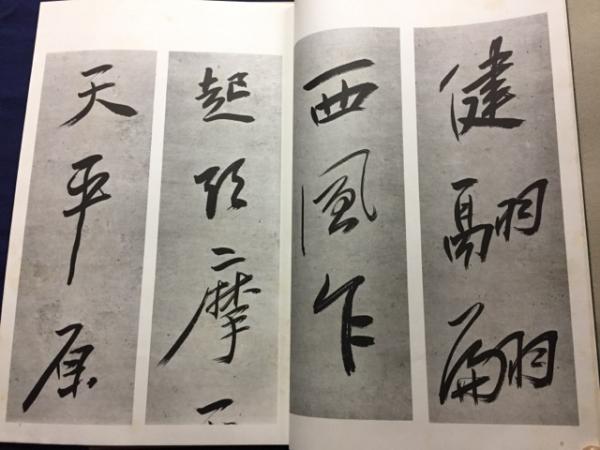 健翮翩
西風乍
起二摩
天平原